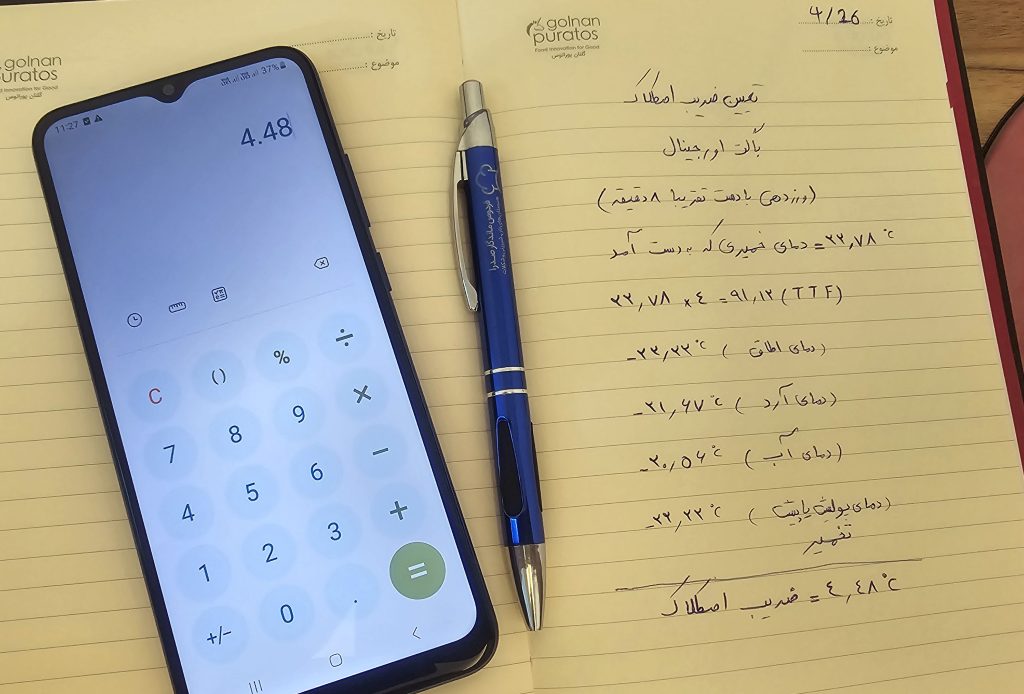 golnan
puratos
Food Innovation for Good
گلنان پوراتوس
تاریخ :
موضوع :
11:27
37%
4.48
C
()
%
÷
7
8
9
×
4
5
6
−
1
2
3
+
+/−
0
.
=
golnan
puratos
Food Innovation for Good
گلنان پوراتوس
تاریخ : 4/26
موضوع :
تعیین ضریب اصطکاک
باگت اورجینال
(ورزدهی با دست تقریبا ۸ دقیقه)
۲۲٫۷۸ °c = دمای خمیری که به دست آمد
۲۲٫۷۸ × ٤ = ۹۱٫۱۲ (TTF)
-۲۲٫۲۲ °c (دمای اطاق)
-۲۱٫۶۷ °c (دمای آرد)
-۲۰٫۵۶ °c (دمای آب)
-۲۲٫۲۲ °c (دمای پولیش یا پیش تخمیر)
٤٫٤۸ °c = ضریب اصطکاک